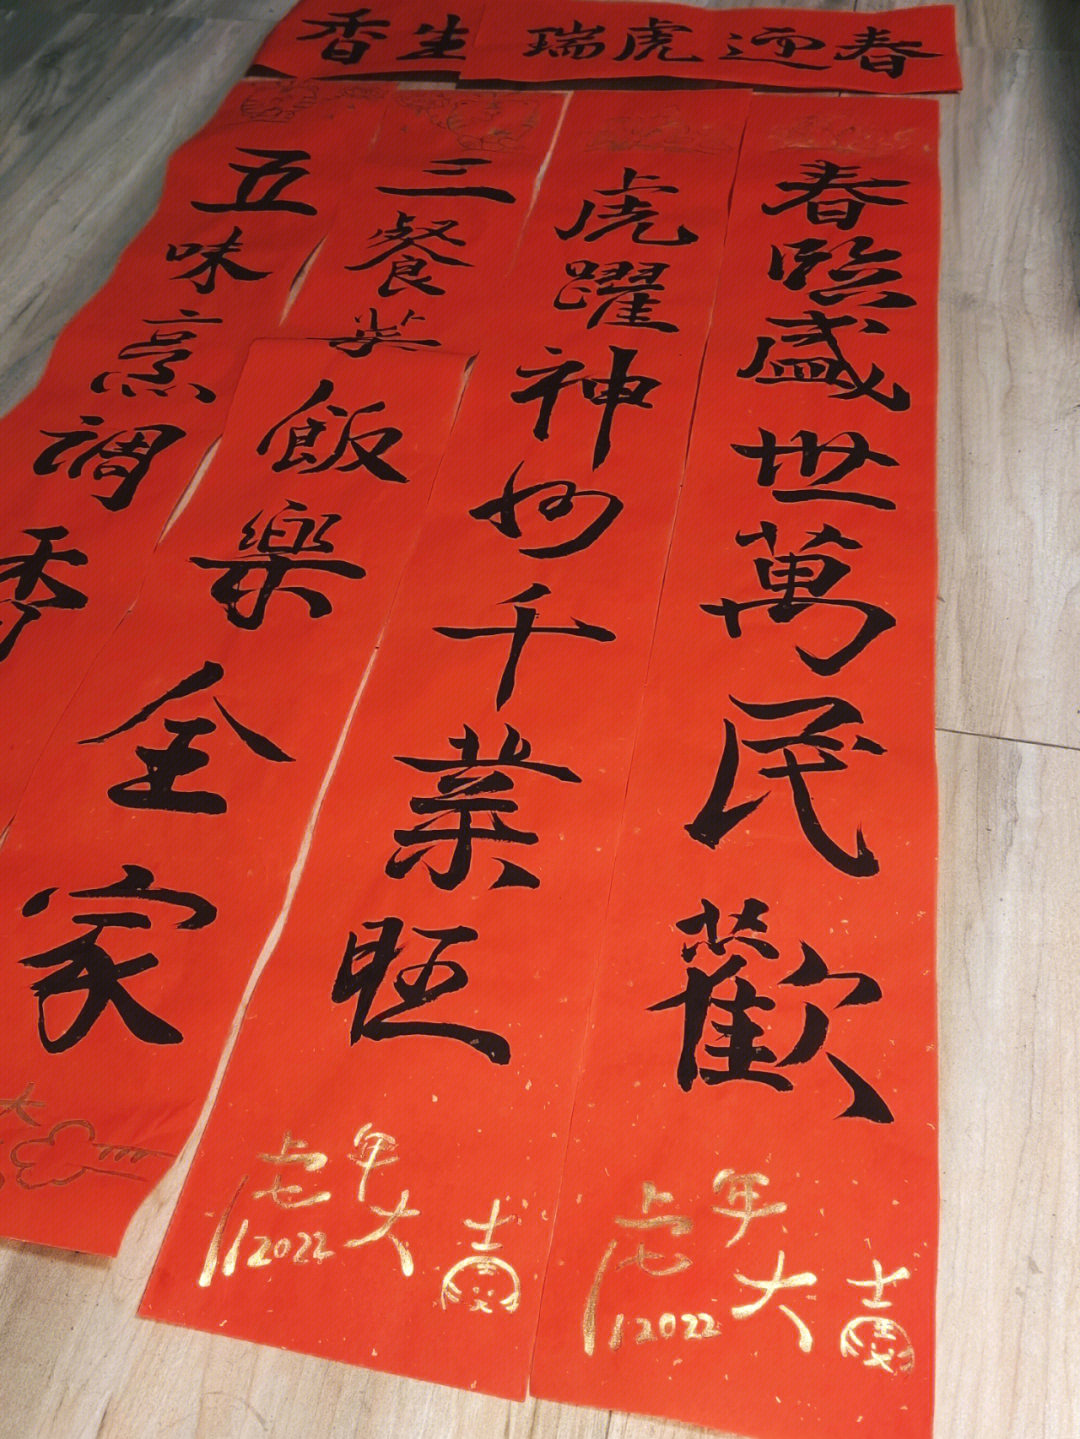 香生
瑞虎迎春
春臨盛世萬民歡
虎年大吉
2022
虎躍神州千業旺
虎年大吉
2022
三餐
飯樂全家
大
五味烹調香